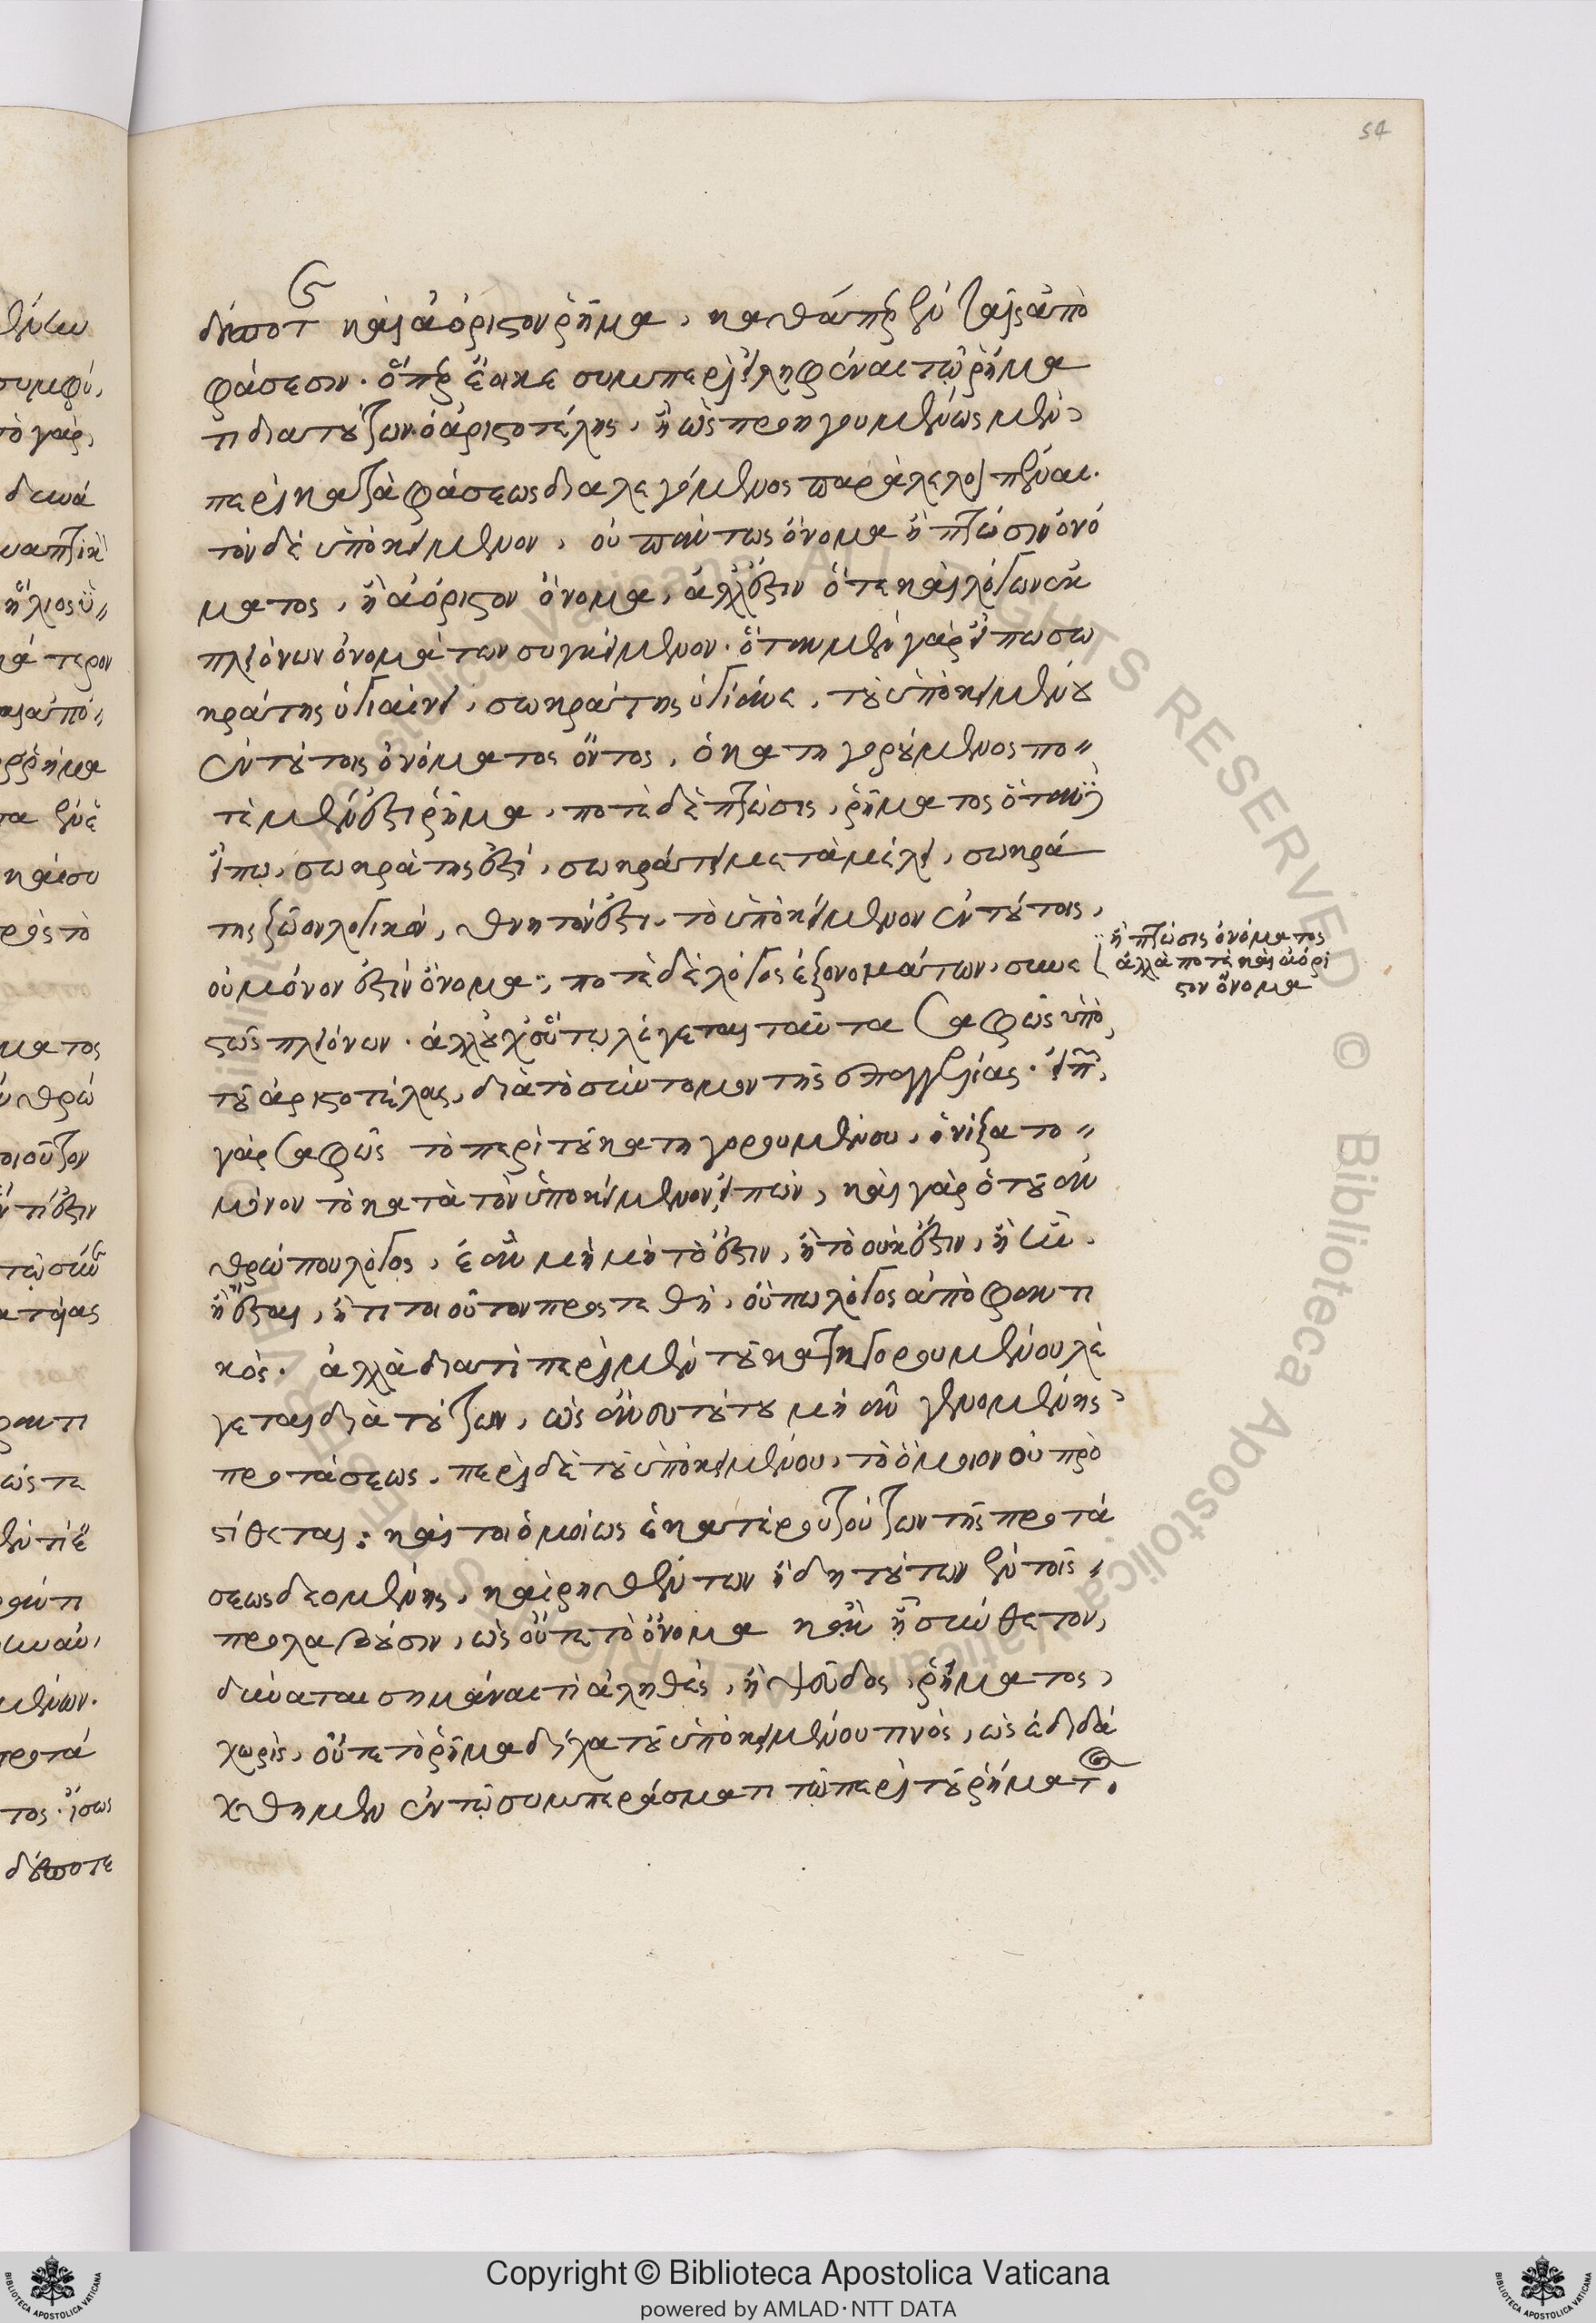 54
δήποτε καὶ ἀόριστον ῥῆμα, καθάπερ ἐν ταῖς ἀπο
φάσεσιν. ὅπερ ἔοικε συμπεριειληφέναι τῷ ῥήμα
τι διὰ τούτων ὁ ἀριστοτέλης, ἢ ὡς προηγουμένως μὲν
περὶ καταφάσεως διαλεγόμενος παραλελοιπέναι.
τὸν δὲ ὑποκείμενον, οὐ πάντως ὄνομα ἢ πτῶσιν ὀνό
ματος, ἢ ἀόριστον ὄνομα, ἀλλ' ἔστιν ὅτε καὶ λόγων ἐκ
πλειόνων ὀνομάτων συγκείμενον. ὅταν μὲν γὰρ εἴπω σω
κράτης ὑγιαίνει, σωκράτης ὑγίανε, τοῦ ὑποκειμένου
ἐν τούτοις ὀνόματος ὄντος, ὁ κατηγορούμενος πο
τὲ μὲν ἐστι ῥῆμα, ποτὲ δὲ πτῶσις ῥήματος ὅταν
εἴπω, σωκράτης ἐστί, σωκράτει μεταμέλει, σωκρά
της ζῷον λογικόν, θνητόν ἐστι. τὸ ὑποκείμενον ἐν τούτοις,
οὐ μόνον ἐστὶν ὄνομα, ποτὲ δὲ λόγος ἐξ ὀνομάτων συνε
ἢ πτῶσις ὀνόματος
ἀλλὰ ποτὲ καὶ ἀόρι
στον ὄνομα
στὼς πλειόνων. ἀλλ' οὐχ οὕτω λέγεται ταῦτα σαφῶς ὑπὸ
τοῦ ἀριστοτέλους, διὰ τὸ σύντομον τῆς ἀπαγγελίας. εἰπὼν
γὰρ σαφῶς τὸ περὶ τοῦ κατηγορουμένου, ᾐνίξατο
μόνον τὸ κατὰ τὸν ὑποκείμενον εἰπών, καὶ γὰρ ὁ τοῦ ἀν
θρώπου λόγος, ἐὰν μὴ μὴ τὸ ἔστιν, ἢ τὸ οὐκ ἔστιν, ἢ ἦν.
ἢ ἔσται, ἤ τι τοιοῦτον προστεθῇ, οὔπω λόγος ἀποφαντι
κός. ἀλλὰ διατί περὶ μὲν τοῦ κατηγορουμένου λέ
γεται διὰ τούτων, ὡς ἄνευ τούτου μὴ ἂν γενομένης
προτάσεως, περὶ δὲ τοῦ ὑποκειμένου, τὸ ὅμοιον οὐ προ
στίθεται; καίτοι ὁμοίως ἑκατέρου τούτων τῆς προτά
σεως δεομένης, καὶ ῥηθέντων ἤδη τούτων ἐν τοῖς
προλαβοῦσιν, ὡς οὔτε τὸ ὄνομα κἂν ᾖ σύνθετον,
δύναται σημᾶναί τι ἀληθές, ἢ ψεῦδος, ῥήματος
χωρίς, οὔτε τὸ ῥῆμα δίχα τοῦ ὑποκειμένου τινός, ὡς ἐδιδά
χθημεν ἐν τῷ συμπεράσματι τῷ περὶ τοῦ ῥήματος.
Copyright © Biblioteca Apostolica Vaticana
powered by AMLAD·NTT DATA